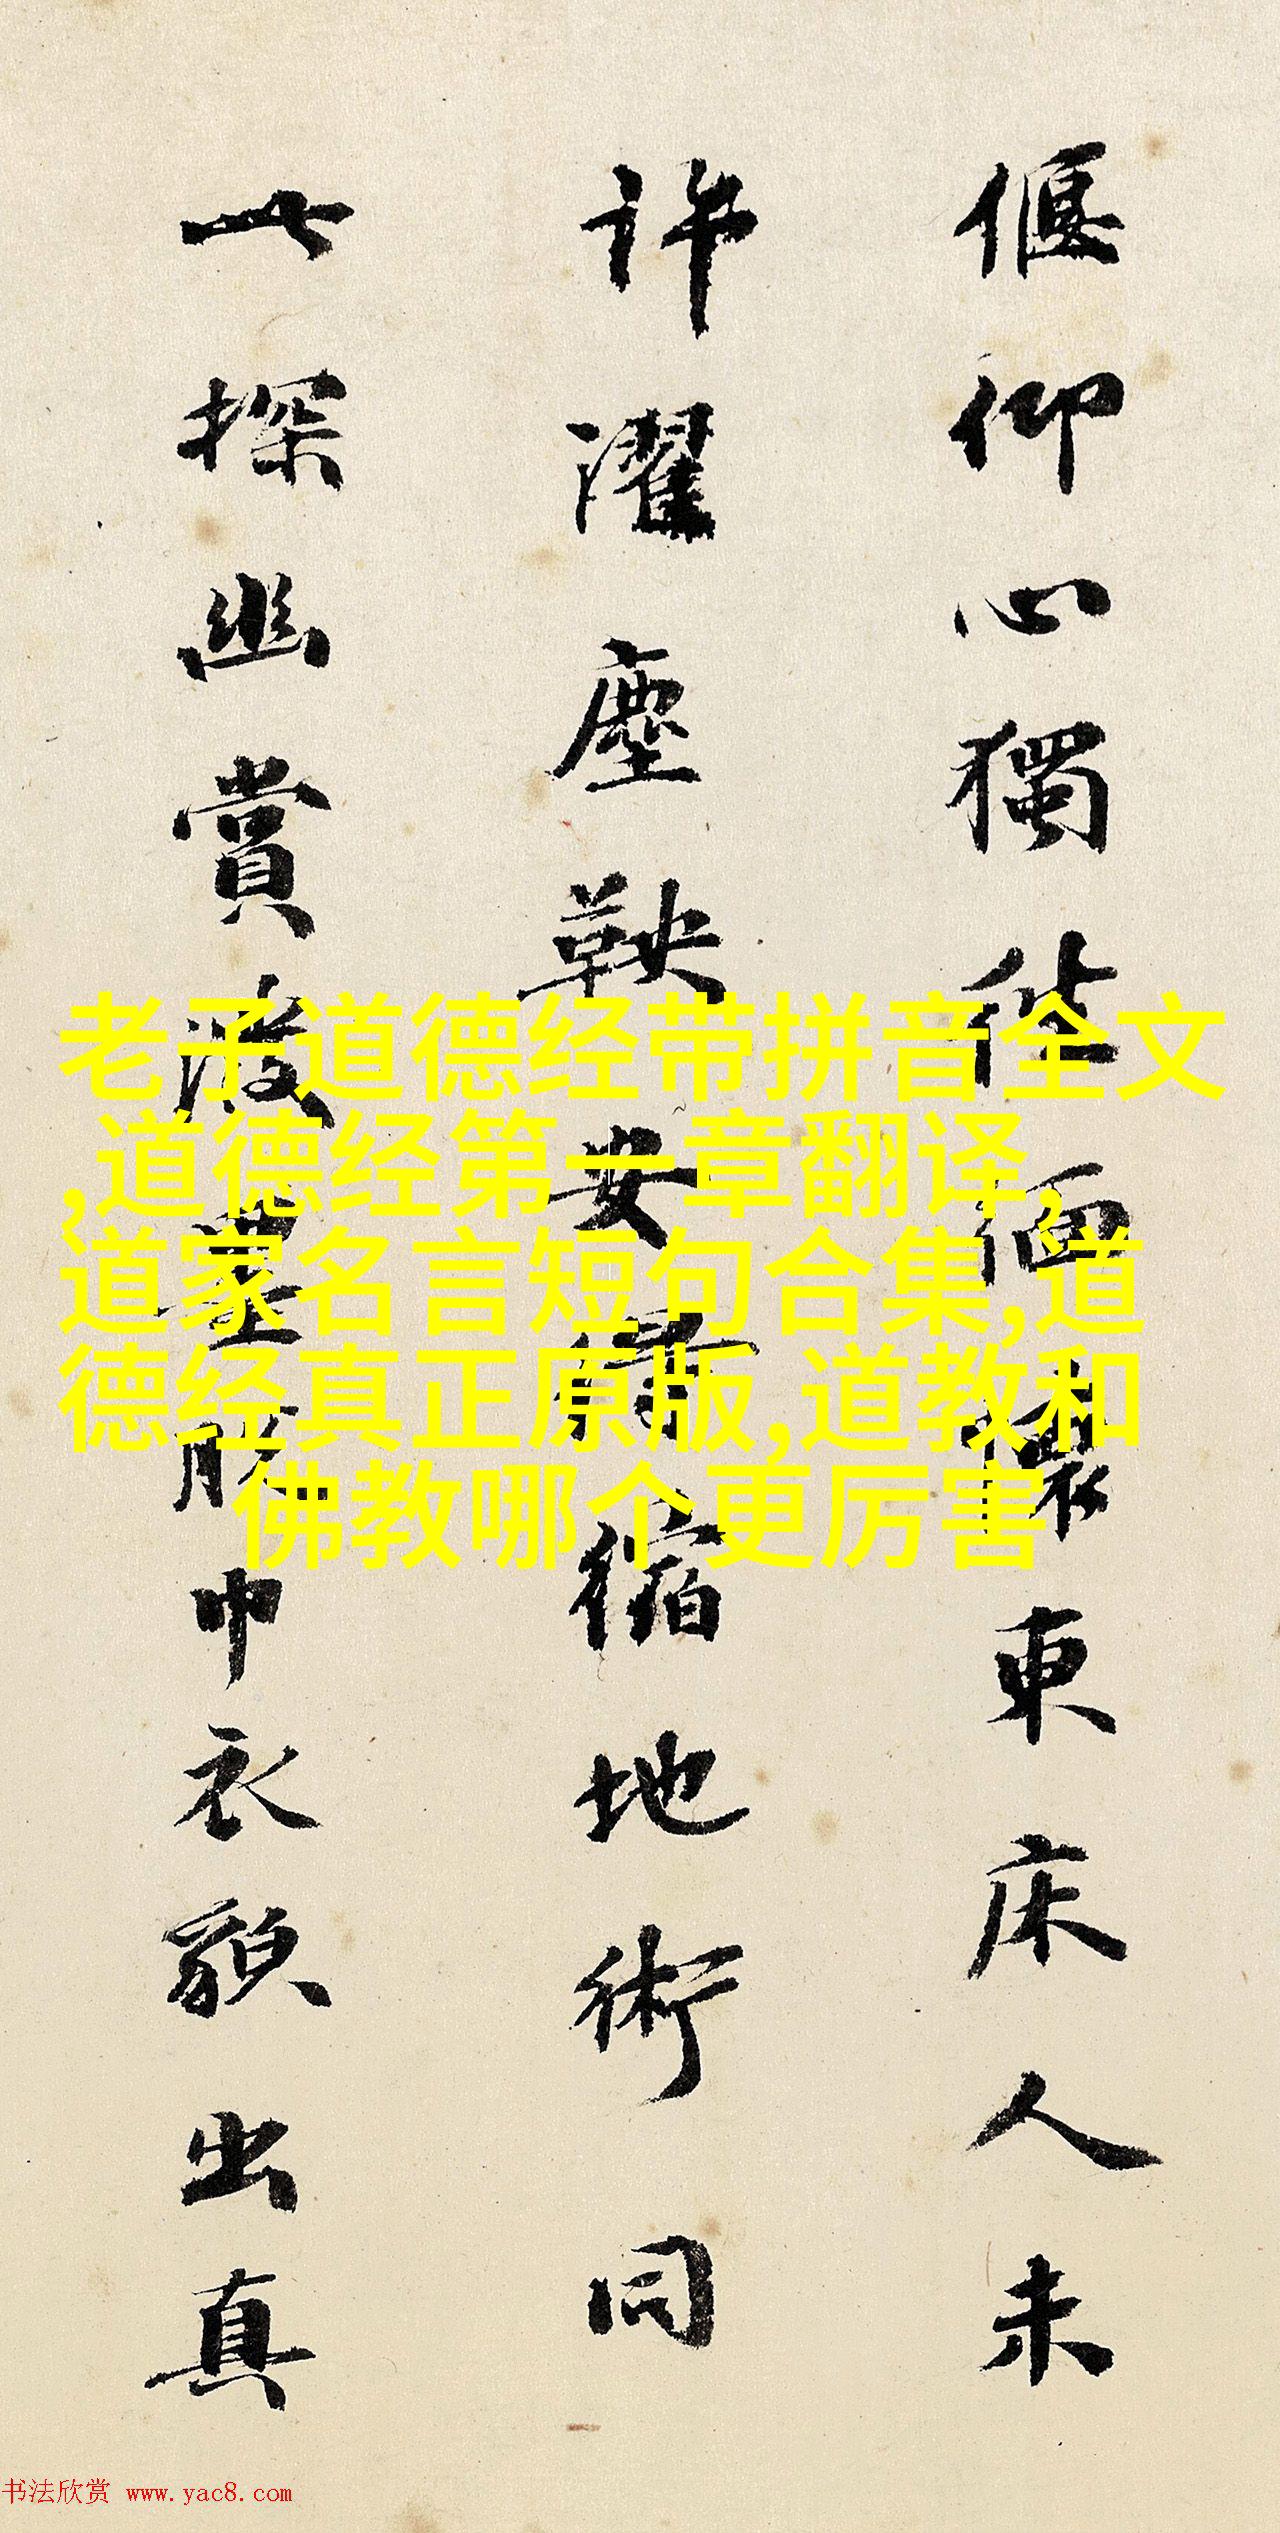 偃仰心獨往緬懷東床人未
許濯塵鞅安得縮地術同
此探幽賞脫巾衣貌出真
老子道德经带拼音全文
,道德经第一章翻译,
道家名言短句合集,道
德经真正原版,道教和
佛教哪个更厉害
书法欣赏 www.yac8.com